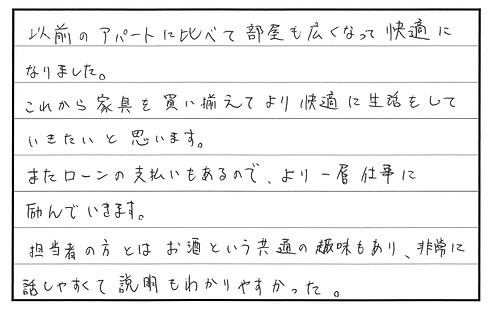 以前のアパートに比べて部屋も広くなって快適に
なりました。
これから家具を買い揃えてより快適に生活をして
いきたいと思います。
またローンの支払いもあるので、より一層仕事に
励んでいきます。
担当者の方とはお酒という共通の趣味もあり、非常に
話しやすくて説明もわかりやすかった。